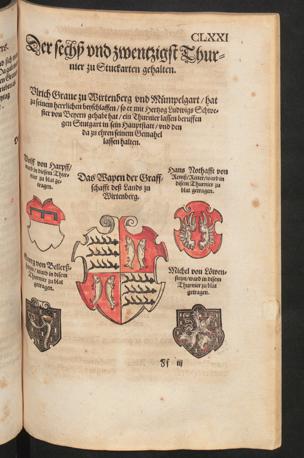 CLXXI
Der sechß vnd zwentzigst Thur-
nier zu Stuckarten gehalten.
Vlrich Graue zu Wirtenberg vnd Mümpelgart / hat
zu seinem herrlichen beyschlaffen / so er mit Hertzog Ludwigs Schwe-
ster von Beyern gehabt hat / ein Thurnier lassen beruffen
gen Stutgart in sein Hauptstatt / vnd den
da zu ehren seinem Gemahel
lassen halten.
Wolff von Harpff /
ward in disem Thur-
nier zu blat ge-
tragen.
Das Wapen der Graff-
schafft deß Lands zu
Wirtenberg.
Hans Nothafft von
ward in
disem Thurnier zu
blat getragen.
von Bellerß-
ward in disem
Thurnier zu blat
getragen.
Michel von Löwen-
steyn / ward in disem
Thurnier zu blat
getragen.
Ff iij